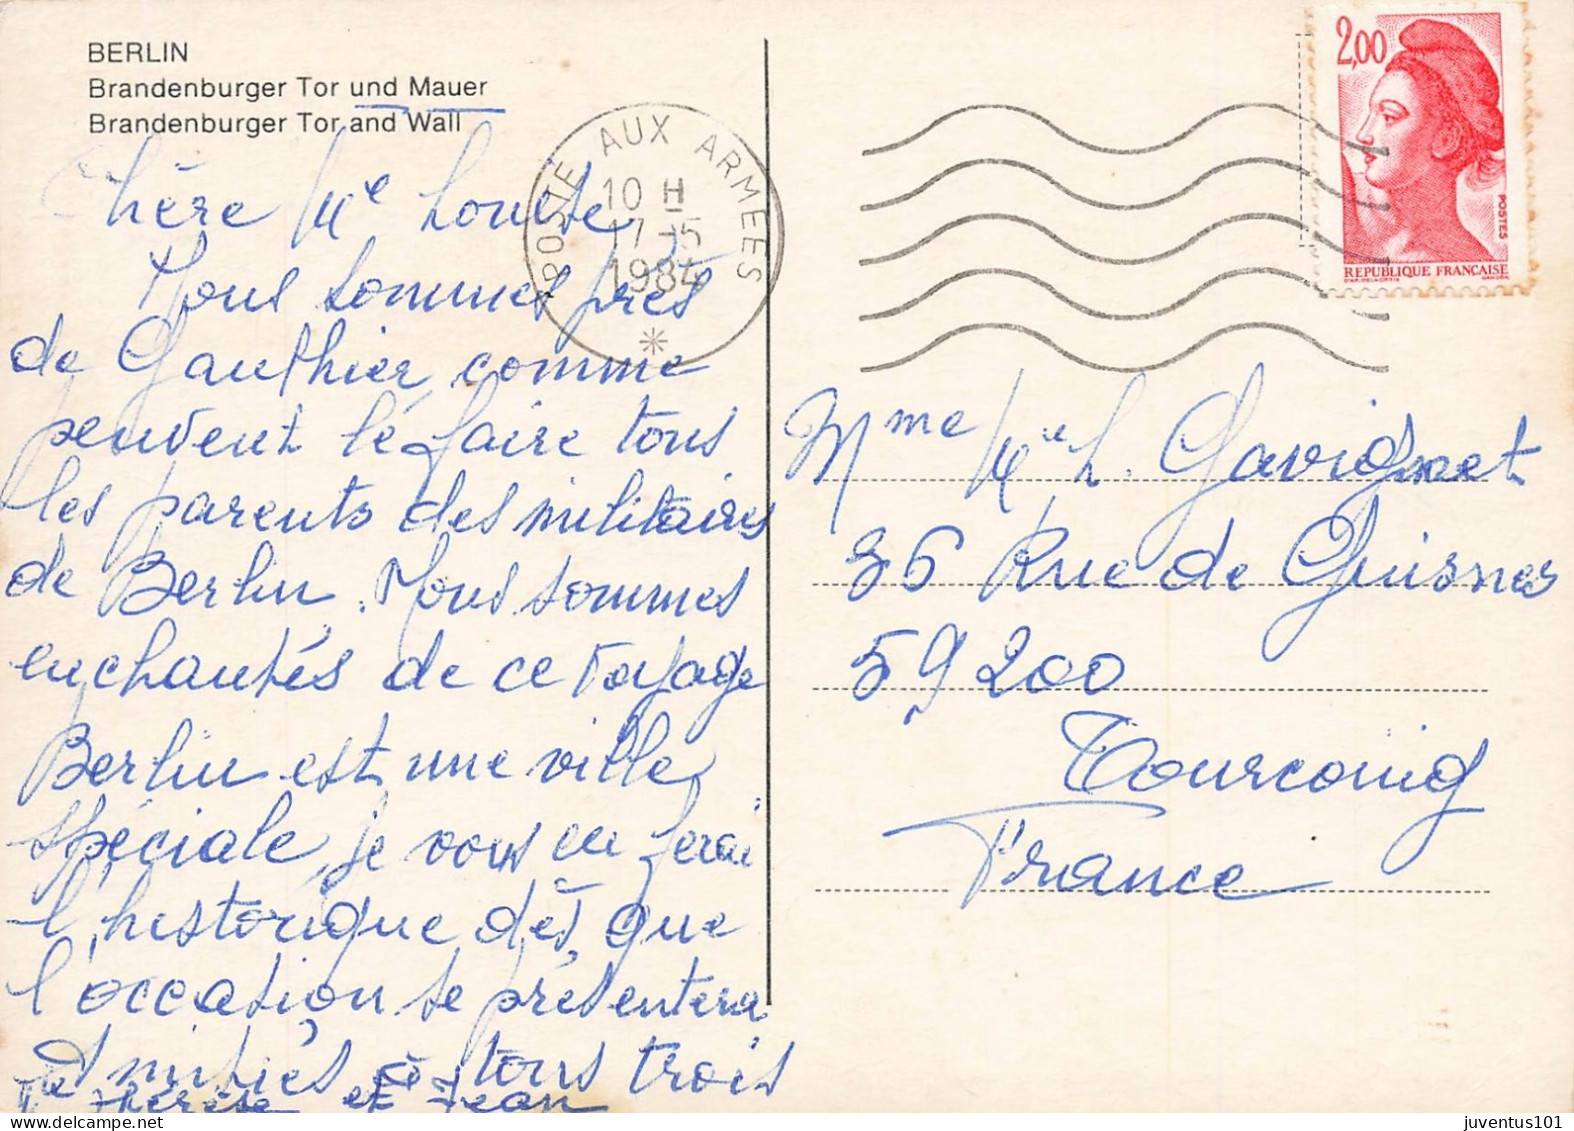 BERLIN
Brandenburger Tor und Mauer
Brandenburger Tor and Wall
Chère Me Louise,
Nous sommes près
de Gauthier, comme
peuvent le faire tous
les parents des militaires
de Berlin. Nous sommes
enchantés de ce voyage
Berlin est une ville
spéciale, je vous en ferai
l'historique dès que
l'occasion se présentera
Amitiés à tous trois
Me Thérèse et Jean
POSTE AUX ARMEES
10 H
17-5
1984
2,00
POSTES
REPUBLIQUE FRANÇAISE
Mme Me L. Gavignet
36 Rue de Guisnes
59200
Tourcoing
France
juventus101